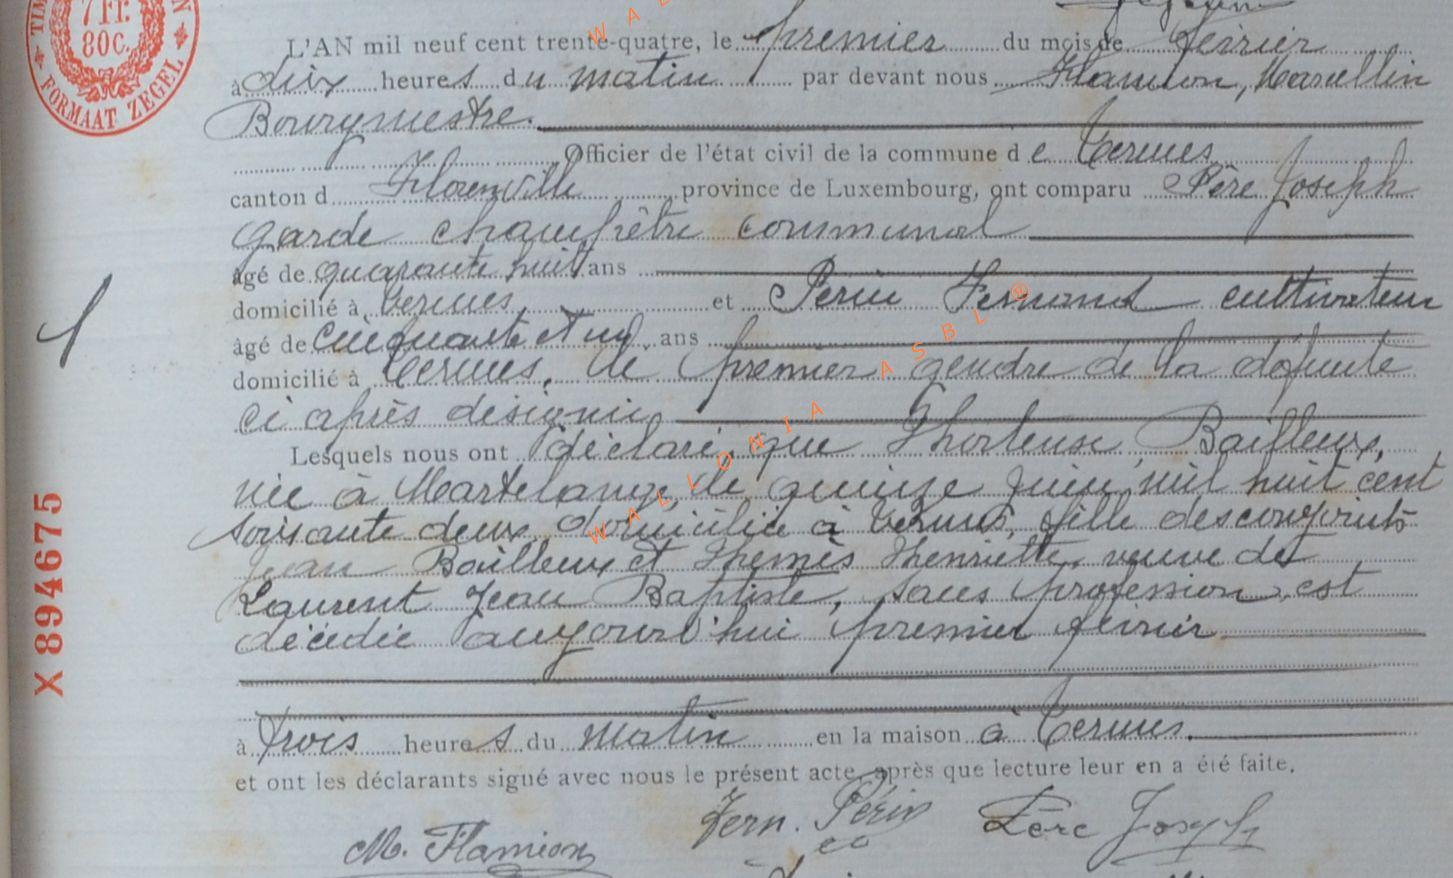 7 Fr.
80C.
FORMAAT ZEGEL
L'AN mil neuf cent trente-quatre, le premier du mois de février
à dix heures du matin par devant nous Flamion, Marcellin
Bourgmestre.
Officier de l'état civil de la commune de Termes
canton d Florenville province de Luxembourg, ont comparu Père Joseph
garde champêtre communal
âgé de quarante huit ans
domicilié à Termes et Perin Fernand cultivateur
âgé de cinquante et un ans
domicilié à Termes, le premier gendre de la défunte
ci après désignée
Lesquels nous ont déclaré que Hortense Bailleux,
née à Martelange le quinze juin mil huit cent
soixante deux, domiciliée à Termes, fille des conjoints
Jean Bailleux et Themès Henriette, veuve de
Laurent Jean Baptiste, sans profession, est
décédée aujourd'hui premier février
à trois heures du matin en la maison à Termes.
et ont les déclarants signé avec nous le présent acte, après que lecture leur en a été faite.
M. Flamion Fern. Périn Père Joseph
X 894675
WALLONIA ASBL®